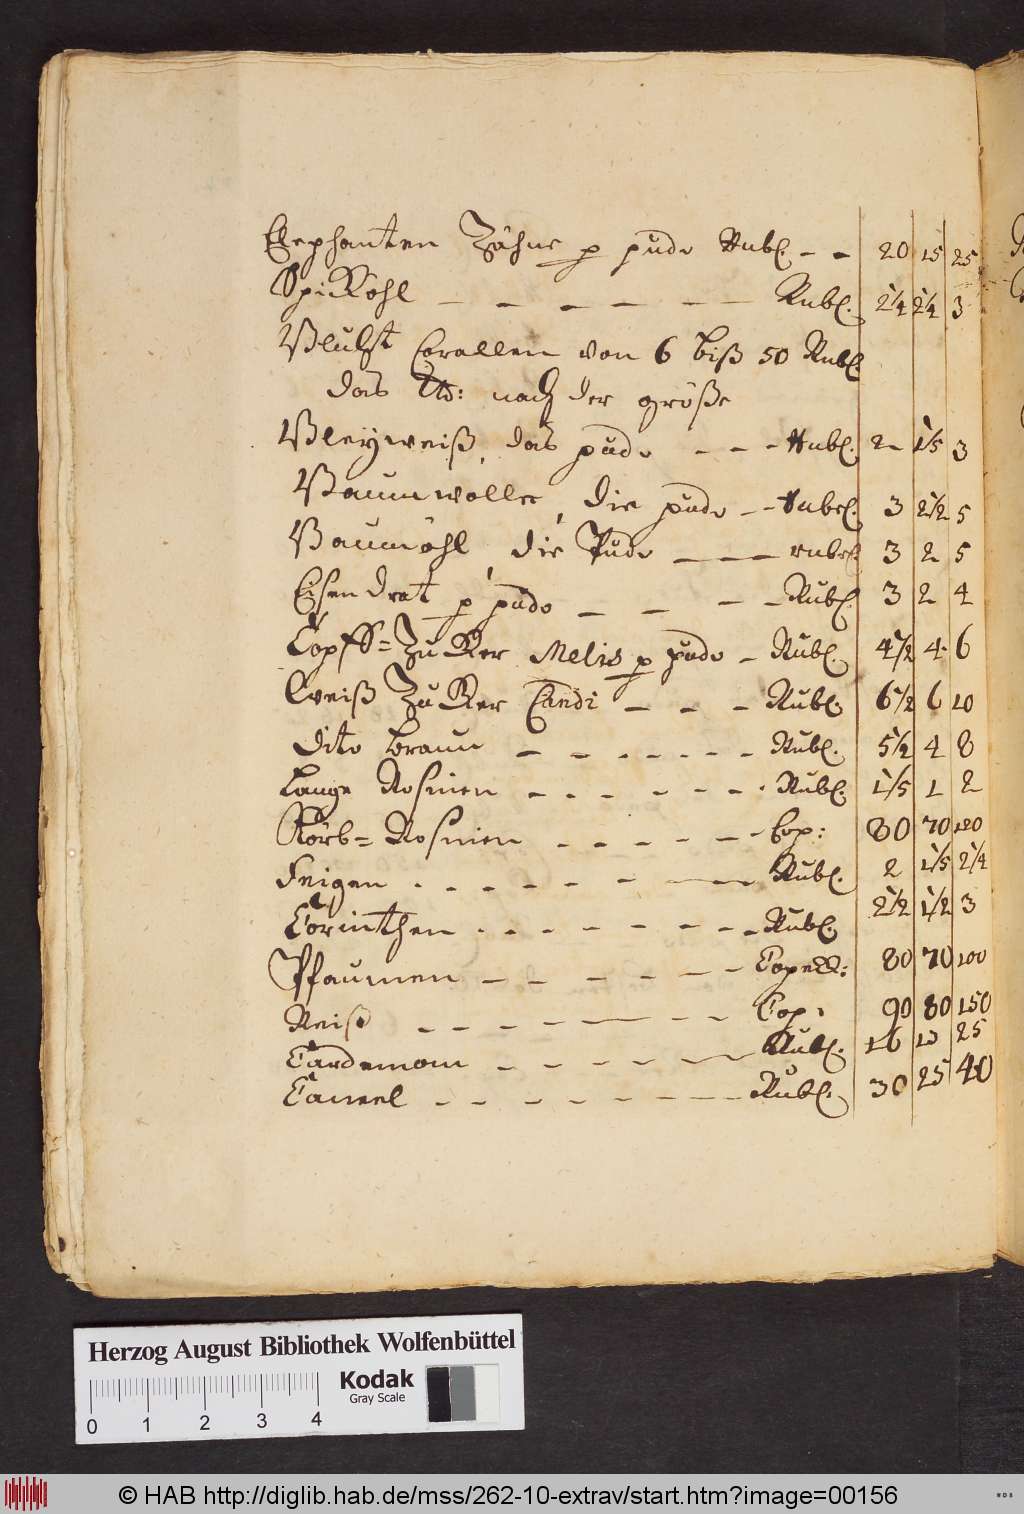 Elephanten Zähne p pudo Rubl. -- 20 15 25
Spickohl - - - - - - Rubl. 2¼ 2¼ 3
Bluhst Corallen von 6 biß 50 Rubl.
das ℔: nach der größe
Bleyweiß, das pudo - - - Rubl. 2 1/5 3
Baumwolle, die pudo -- Rubl. 3 2½ 5
Baumöhl, die Pudo --- rubl. 3 2 5
Eisen drat p pudo - - - - Rubl. 3 2 4
Topff=Zucker Melis p pudo - Rubl. 4½ 4 6
Weiß Zucker Candi - - - Rubl. 6½ 6 10
dito braun - - - - - - - Rubl. 5½ 4 8
Lange Rosinen - - - - - - - Rubl. 1/5 1 2
Körb=Rosinen - - - - - - Cop: 80 70 120
Feigen - - - - - - - - Rubl. 2 1/5 2¼
Corinthen - - - - - - - - Rubl. 2½ 1½ 3
Pflaumen - - - - - - - Copeck: 80 70 100
Reiß - - - - - - Cop: 90 80 150
Cardemom - - - - - - Rubl. 16 10 25
Caneel - - - - - - - - Rubl. 30 25 40
Herzog August Bibliothek Wolfenbüttel
Kodak
Gray Scale
0 1 2 3 4
© HAB http://diglib.hab.de/mss/262-10-extrav/start.htm?image=00156